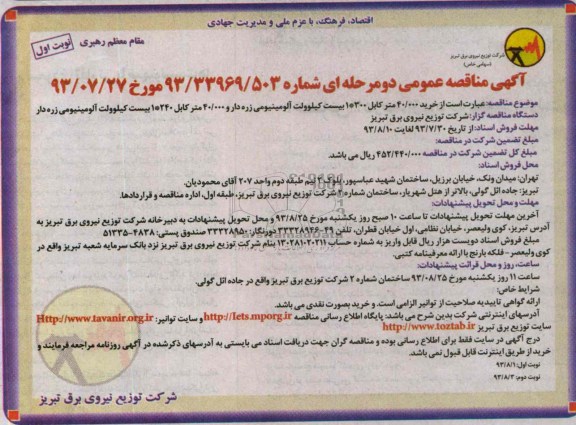 اقتصاد، فرهنگ، با عزم ملی و مدیریت جهادی
مقام معظم رهبری
نوبت اول
شرکت توزیع نیروی برق تبریز
(سهامی خاص)
آگهی مناقصه عمومی دومرحله ای شماره ۹۳/۳۳۹۶۹/۵۰۳ مورخ ۹۳/۰۷/۲۷
موضوع مناقصه: عبارت است از خرید ۴۰/۰۰۰ متر کابل ۳۰۰*۱ بیست کیلوولت آلومینیومی زره دار و ۴۰/۰۰۰ متر کابل ۲۴۰*۱ بیست کیلوولت آلومینیومی زره دار
دستگاه مناقصه گزار: شرکت توزیع نیروی برق تبریز
مهلت فروش اسناد: از تاریخ ۹۳/۷/۳۰ لغایت ۹۳/۸/۱۰
مبلغ تضمین شرکت در مناقصه:
مبلغ کل تضمین شرکت در مناقصه ۴۵۲/۴۴۰/۰۰۰ ریال می باشد.
محل فروش اسناد:
تهران: میدان ونک، خیابان برزیل، ساختمان شهید عباسپور، طبقه دوم واحد ۲۰۷ آقای محمودیان.
تبریز: جاده ائل گولی، بالاتر از هتل شهریار، ساختمان شماره ۲ شرکت توزیع برق تبریز، طبقه اول، اداره مناقصه و قراردادها.
مهلت و محل تحویل پیشنهادات:
آخرین مهلت تحویل پیشنهادات تا ساعت ۱۰ صبح روز یکشنبه مورخ ۹۳/۸/۲۵ و محل تحویل پیشنهادات به دبیرخانه شرکت توزیع نیروی برق تبریز به
آدرس تبریز، کوی ولیعصر، خیابان نظامی، اول خیابان قطران، تلفن ۴۹-۳۳۳۲۸۹۴۶ دورنگار: ۳۳۳۲۸۹۵۰ صندوق پستی: ۴۸۳۸-۵۱۳۳۵
مبلغ فروش اسناد دویست هزار ریال قابل واریز به شماره حساب ۱۳۰۲۸۱۰۲۰۲۱۱ بنام شرکت توزیع نیروی برق تبریز نزد بانک سرمایه شعبه تبریز واقع در
کوی ولیعصر - فلکه بارنج با ارائه معرفینامه کتبی.
ساعت، روز و محل قرائت پیشنهادات:
ساعت ۱۱ روز یکشنبه مورخ ۹۳/۰۸/۲۵ ساختمان شماره ۲ شرکت توزیع برق تبریز واقع در جاده ائل گولی.
شرایط خاص:
ارائه گواهی تاییدیه صلاحیت از توانیر الزامی است. و خرید بصورت نقدی می باشد.
آدرسهای اینترنتی شرکت بدین شرح می باشد: پایگاه اطلاع رسانی مناقصه Http://Iets.mporg.ir و سایت توانیر: Http://www.tavanir.org.ir
سایت توزیع برق تبریز http://www.toztab.ir
درج آگهی در سایت فقط برای اطلاع رسانی بوده و مناقصه گران جهت دریافت اسناد می بایستی به آدرسهای ذکرشده در آگهی روزنامه مراجعه فرمایند و
خرید از طریق اینترنت قابل قبول نمی باشد.
نوبت اول: ۹۳/۸/۱
نوبت دوم: ۹۳/۸/۳
شرکت توزیع نیروی برق تبریز